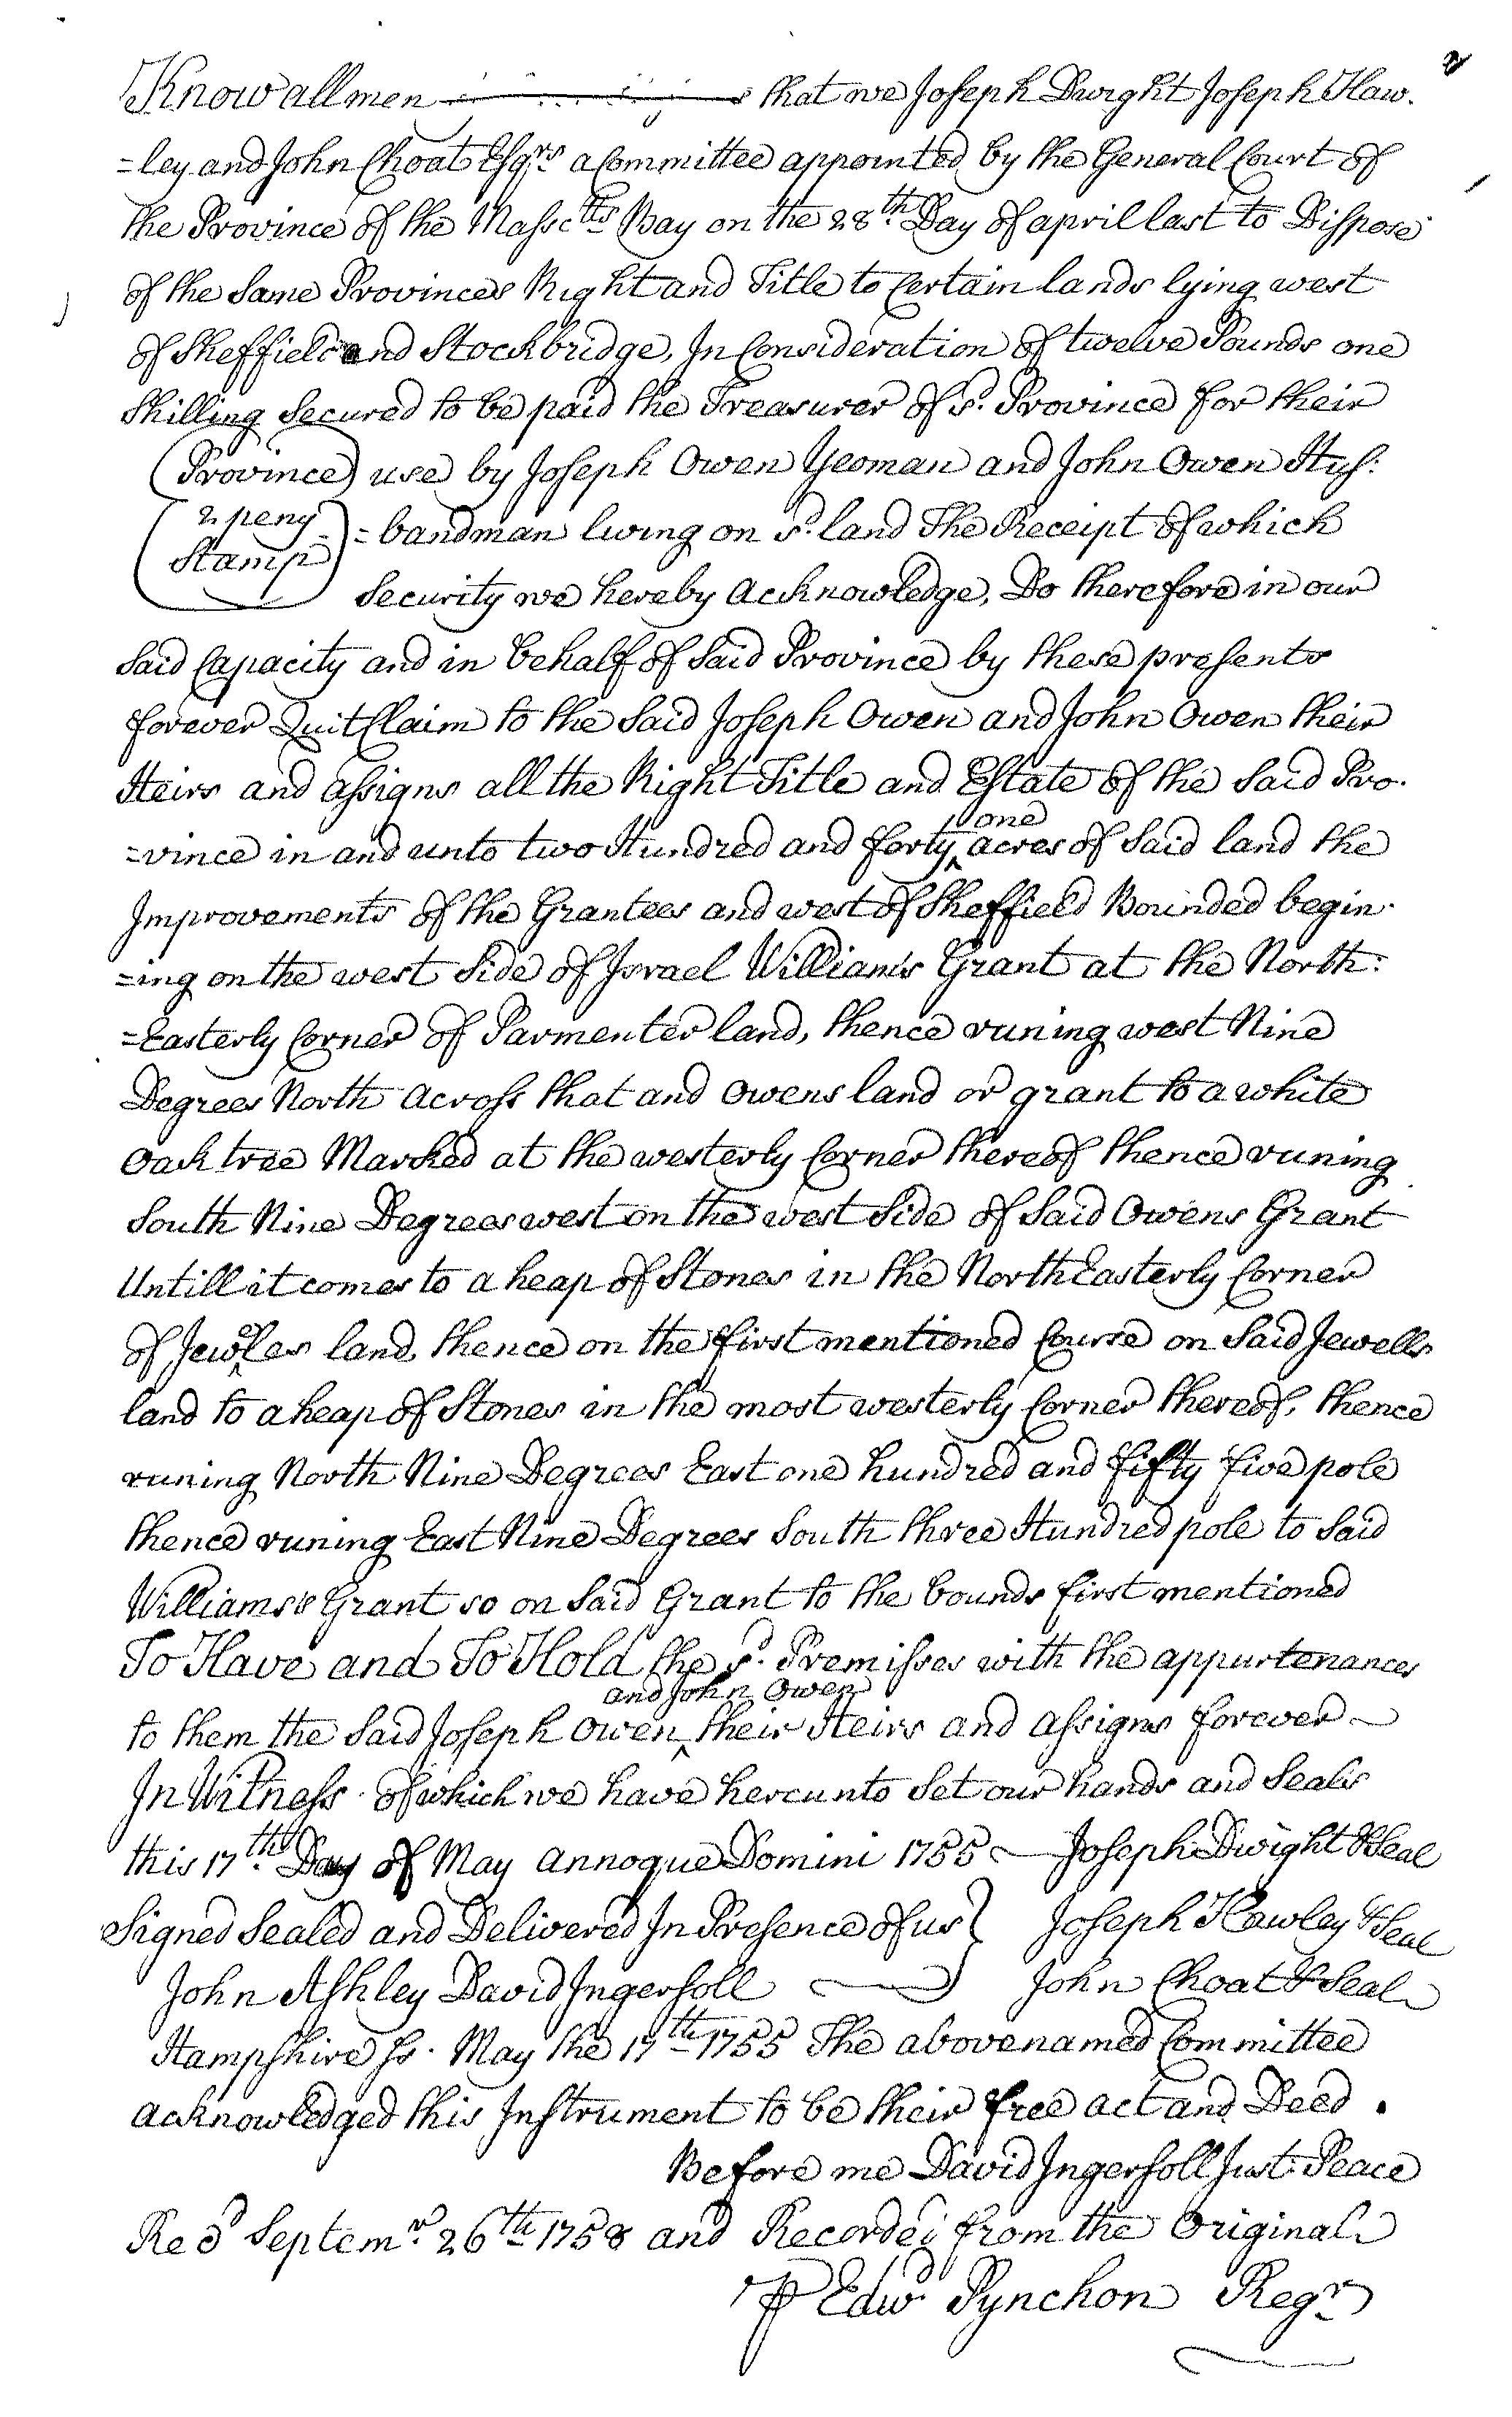 Know all men that we Joseph Dwight Joseph Haw-
=ley and John Choat Esqrs a Committee appointed by the General Court of
the Province of the Massctts Bay on the 28th Day of april last to Dispose
of the Same Provinces Right and Title to Certain lands lying west
of Sheffield and Stockbridge, In Consideration of twelve Pounds one
Shilling Secured to be paid the Treasurer of sd. Province for their
(Province) use by Joseph Owen Yeoman and John Owen Hus:
(2 peny =bandman living on sd. land The Receipt of which
Stamp) Security we hereby Acknowledge, Do therefore in our
Said Capacity and in behalf of Said Province by these presents
forever QuitClaim to the Said Joseph Owen and John Owen their
Heirs and assigns all the Right Title and Estate of the Said Pro-
=vince in and unto two Hundred and forty ^one acres of Said land the
Improvements of the Grantees and west of Sheffield Bounded begin-
=ing on the west Side of Israel William's Grant at the North:
=Easterly Corner of Parmenter land, thence runing west Nine
Degrees North across that and Owens land or grant to a white
Oak tree Marked at the westerly Corner thereof thence runing
South Nine Degrees west on the west Side of Said Owens Grant
Untill it comes to a heap of Stones in the NorthEasterly Corner
of Jeweles land, thence on the first mentioned Course on Said Jewells
land to a heap of Stones in the most westerly Corner thereof, thence
runing North Nine Degrees East one hundred and fifty five pole
thence runing East Nine Degrees South three Hundred pole to Said
Williams's Grant so on Said Grant to the bounds first mentioned
To Have and To Hold the sd. Premisses with the appurtenances
to them the Said Joseph Owen ^and John Owen their Heirs and assigns forever
In Witness of which we have hereunto Set our hands and Seals
this 17th. Day of May annoque Domini 1755 Joseph Dwight & Seal
Signed Sealed and Delivered In Presence of us } Joseph Hawley & Seal
John Ashley David Ingersoll John Choat & Seal
Hampshire Ss. May the 17th 1755 The abovenamed Committee
acknowledged this Instrument to be their free act and Deed.
Before me David Ingersoll Just: Peace
Recd Septemr. 26th 1758 and Recorded from the Original
P Edwd Pynchon Regr